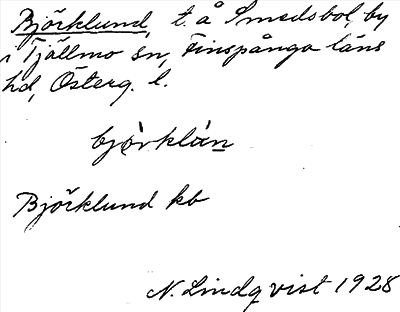 Björklund, t. å Smedsbol, by
i Tjällmo sn, Finspånga läns
hd, Österg. l.
bjö̀rklán
Björklund kb
N. Lindqvist 1928